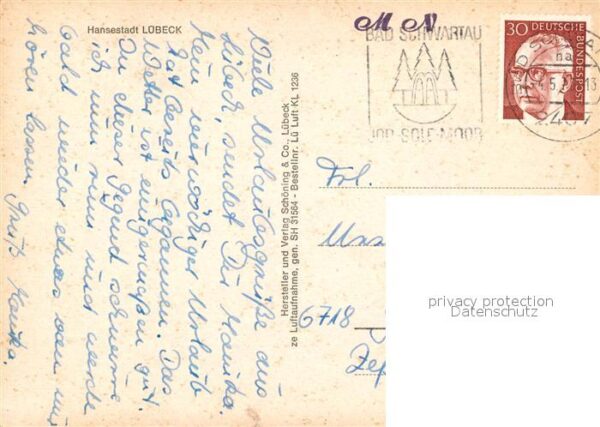 Hansestadt LÜBECK
Viele Urlaubsgrüße aus
Lübeck, sendet Dir Marika.
Mein vierwöchiger Urlaub
hat bereits begonnen. Das
Wetter ist einigermaßen gut.
In dieser Gegend
ich nun rum und werde
bald wieder etwas von mir
hören lassen. Gruß Marika.
Hersteller und Verlag Schöning & Co., Lübeck
ze Luftaufnahme, gen. SH 31564 - Bestellnr. Lü Luft KL 1236
M N
BAD SCHWARTAU
JOD-SOLE-MOOR
30 DEUTSCHE
BUNDESPOST
Frl.
6718
privacy protection
Datenschutz